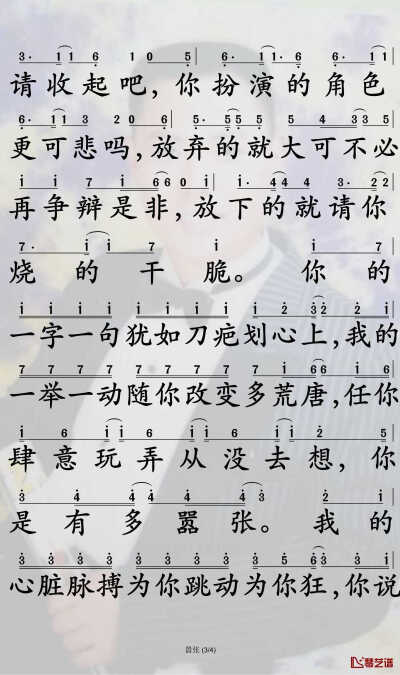 3· 1 1 6 1 0 5 6· 1 1· 6 6· 1 1
请收起吧,你扮演的角色
6· 1 1 3 2 0 6 5· 5 5 5 5 4 3 3 5
更可悲吗,放弃的就大可不必
i i 7 i 6 6 0 i i· 4 4 4 3· 2 2
再争辩是非,放下的就请你
7· i i 7 i i 7
烧的干脆。你的
i i i i i i i i i 2 3 2 2 i
一字一句犹如刀疤划心上,我的
7 7 7 7 7 7 7 7 7 i 6 6 i
一举一动随你改变多荒唐,任你
i 6 i i 6 i i 6 i i 2 5
肆意玩弄从没去想,你
3 4 4 4 4 4 3 2 i
是有多嚣张。我的
3 3 3 3 3 3 3 3 3 5 6 3 3 i
心脏脉搏为你跳动为你狂,你说
嚣张 (3/4)
琴艺谱